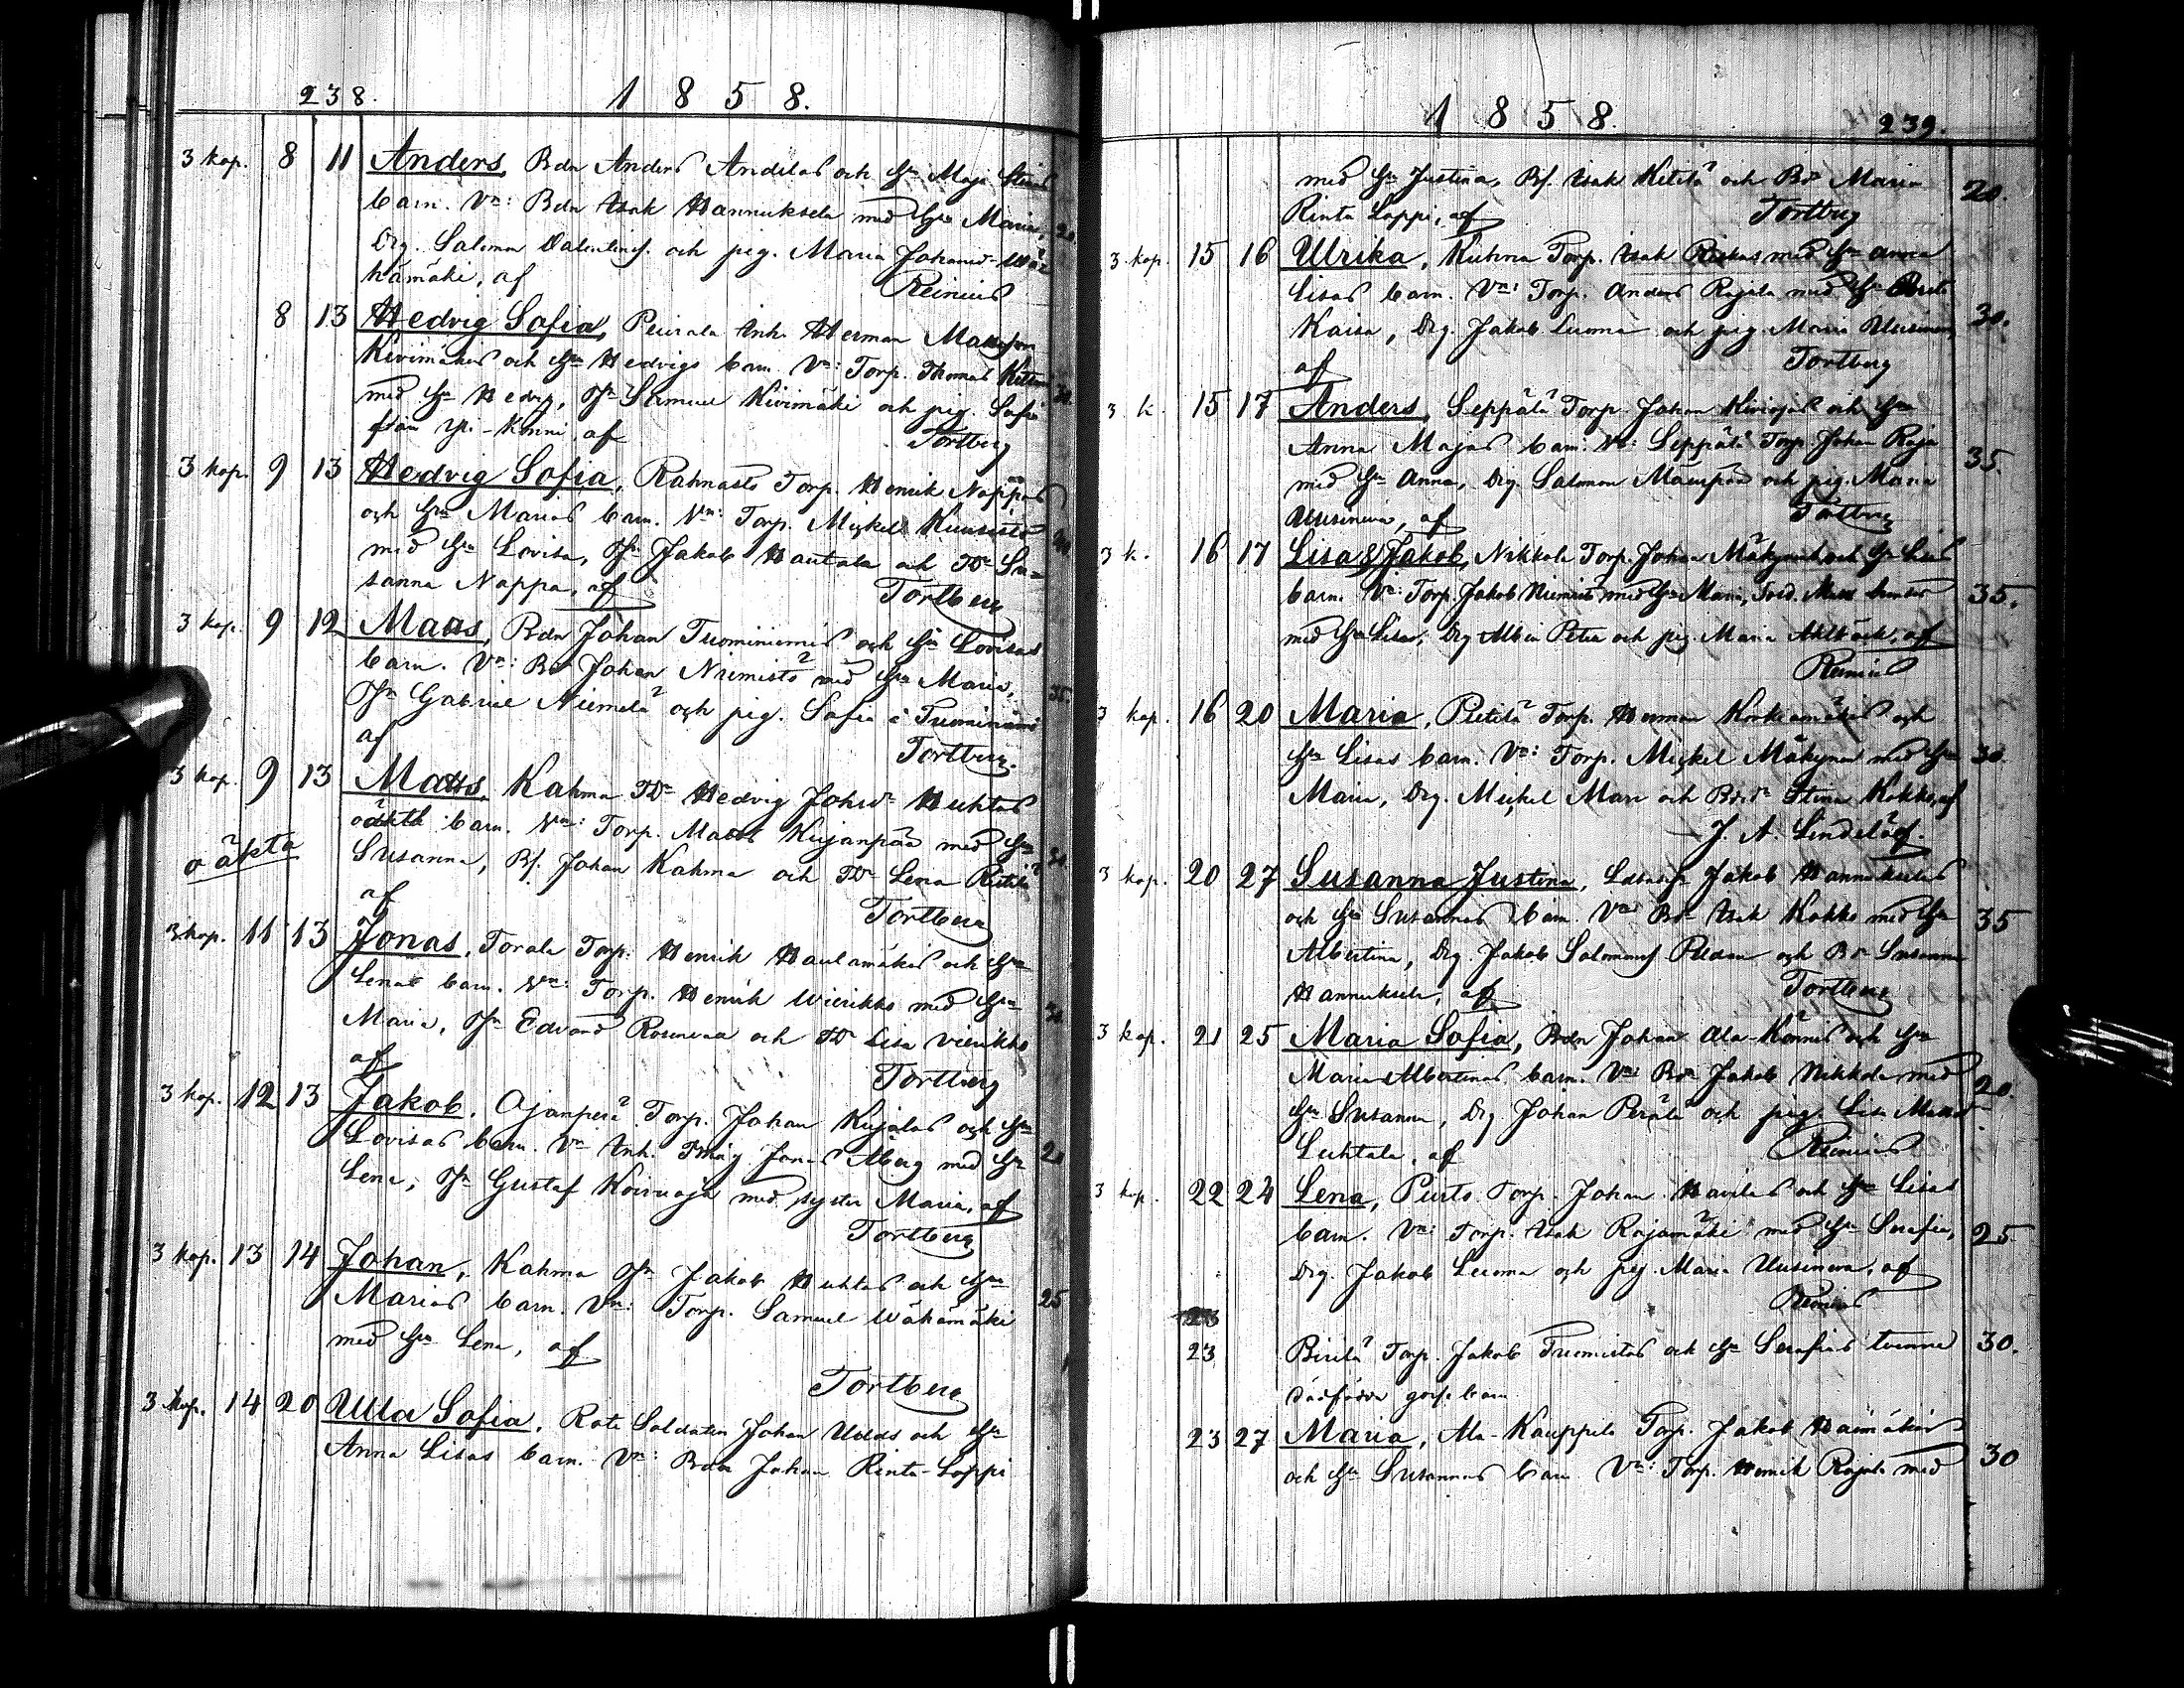 238. 1858.
3 kop. 8 11 Anders, Bdn Anders Andelas och Hu Maja Stinas
barn. Vn: Bdn Isak Hannuksela med Hu Maria, 20.
Drg. Salomon Valentins. och pig. Maria Johansd. Wä=
hämäki, af Reinius
8 13 Hedvig Sofia, Peurala Inh. Herman Mattsson
Kivimäkis och Hu Hedvigs barn. Vn: Torp. Thomas
med Hu Hedvig, Sn Samuel Kivimäki och pig. Sofia 30.
från Yli-Könni, af Tortberg
3 kop. 9 13 Hedvig Sofia, Rahnasto Torp. Henrik Nappas
och Hu Marias barn. Vn: Torp. Mickel Kuusisto
med Hu Lovisa, Sn Jakob Hautala och TDr Su=
sanna Nappa, af Tortberg
3 kop. 9 12 Matts, Bdn Johan Tuominiemis och Hu Lovisas
barn. Vn: Bd Johan Niemistö med Hu Maria, 35.
Sn Gabriel Niemelä och pig. Sofia Tuominiemi
af Tortberg.
3 kop. 9 13 Matts, Kahma TDr Hedvig Johsdr Huhtas
oäkta barn. Vn: Torp. Matts Kujanpää med Hu
o äkta Susanna, Bs. Johan Kahma och TDr Lena
af Tortberg
3 kop. 11 13 Jonas, Torala Torp. Henrik Haulamäkis och Hu
Lenas barn. Vn: Torp. Henrik Wierikko med Hu 30.
Maria, Sn Edvard och TDr Lisa Vierikko
af Tortberg
3 kop. 12 13 Jakob, Ojanperä Torp. Johan Kujalas och Hu
Lovisas barn. Vn Inh. Åberg med Hu
Lena, Sn Gustaf Koivuoja med syster Maria, af
Tortberg
3 kop. 13 14 Johan, Kahma Sn Jakob Huhtas och Hu
Marias barn. Vn: Torp. Samuel Wähämäki 25
med Hu Lena, af
Tortberg
3 kop. 14 20 Ulla Sofia, Rote Soldaten Johan Udds och Hu
Anna Lisas barn. Vn: Bdn Johan Rinta-Loppi
1858. 239.
med Hu Justina, Bs. Isak Ketelä och Bdr Maria 20.
Rinta Loppi, af Tortberg
3 kop. 15 16 Ulrika, Kuhna Torp. Isak med Hu Anna
Lisas barn. Vn: Torp. Anders Rajala med Hu Brita
Kaisa, Drg. Jakob Luoma och pig. Maria Uusineva, 30.
af Tortberg
3 k. 15 17 Anders, Seppälä Torp. Johan och Hu
Anna Majas barn. Vn: Seppälä Torp. Johan Raja
med Hu Anna, Drg. Salomon Mäenpää och pig. Maria 35.
Uusineva, af Tortberg
3 k. 16 17 Lisa & Jakob, Nikkola Torp. Johan Mäkynens och Hu Lisas
barn. Vn: Torp. Jakob Niemistö med Hu Maria, 35.
med Hu Lisa, Drg Albin Petra och pig. Maria Ahlbäck, af
Reinius
3 kop. 16 20 Maria, Pietilä Torp. Herman Korkeamäkis och
Hu Lisas barn. Vn: Torp. Mickel Mäkynen med Hu 30.
Maria, Drg. Mickel Mari och Bdr Stina Kokko, af
J. A. Lindelöf.
3 kop. 20 27 Susanna Justina, Jakob Hannukselas
och Hu Susannas barn. Vn Bdn Isak Kokko med Hu 35
Albertina, Drg. Jakob Salomons. och Bdr Susanna
Hannuksela, af Tortberg
3 kop. 21 25 Maria Sofia, Bdn Johan Ala-Könnis och Hu
Maria Albertinas barn. Vn: Bdn Jakob Nikkola med 20.
Hu Susanna, Drg. Johan Perälä och pig. Lisa
Luhtala, af Reinius
3 kop. 22 24 Lena, Purto Torp. Johan och Hu Lisas
barn. Vn: Torp. Isak Rajamäki med Hu Serafia, 25
Drg. Jakob Luoma och pig. Maria Uusineva, af
Reinius
23
23 Pirilä Torp. Jakob Tuomistos och Hu Serafias tvenne 30.
dödfödda goss. barn
23 27 Maria, Ala-Kauppila Torp. Jakob
och Hu Susannas barn Vn: Torp. Henrik Rajala med 30